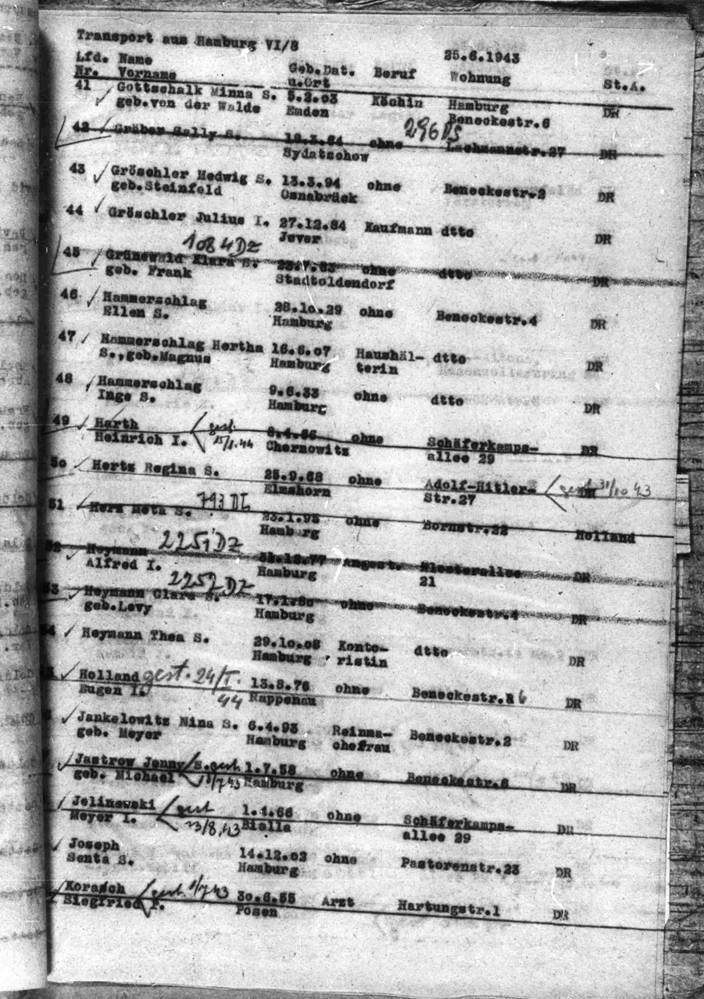 Transport aus Hamburg VI/8 25.6.1943
Lfd. Name Geb.Dat. Beruf Wohnung St.A.
Nr. Vorname u.Ort
41 Gottschalk Minna S. 5.2.03 Köchin Hamburg DR
geb.von der Walde Emden Beneckestr.6
296 DZ
42 Gräber Sally S. ohne Lachmannstr.27 DR
Sydatschow
43 Gröschler Hedwig S. 13.3.94 ohne Beneckestr.2 DR
geb.Steinfeld Osnabrück
44 Gröschler Julius I. 27.12.84 Kaufmann dtto DR
Jever
1084 DZ
45 Grünewald Klara S. ohne dtto DR
geb. Frank Stadtoldendorf
46 Hammerschlag 28.10.29 ohne Beneckestr.4 DR
Ellen S. Hamburg
47 Hammerschlag Hertha 16.6.07 Haushäl- dtto DR
S.,geb.Magnus Hamburg terin
48 Hammerschlag 9.6.33 ohne dtto DR
Inge S. Hamburg
49 Harth gest. ohne Schäferkamps- DR
Heinrich I. 15/1.44 Chernowitz allee 29
50 Hertz Regina S. 25.9.68 ohne Adolf-Hitler- gest. 31/10 43
Elmshorn Str.27
51 Herz Meta S. 793 DZ 23.1.95 ohne Bornstr.22 Holland
Hamburg
52 Heymann 2251 DZ Angest. Klosterallee DR
Alfred I. Hamburg 21
53 Heymann Clara S. 2252 DZ ohne Beneckestr.4 DR
geb.Levy Hamburg
54 Heymann Thea S. 29.10.08 Konto- dtto DR
Hamburg ristin
Holland gest. 24/I. 13.8.76 ohne Beneckestr.6 DR
Eugen I. 44 Rappenau
Jankelowitz Nina S. 6.4.93 Reinma- Beneckestr.2 DR
geb. Meyer Hamburg chefrau
Jastrow Jenny S. gest. 1.7.58 ohne Beneckestr.6 DR
geb. Michael 18/7 43 Hamburg
Jelinewski gest 1.4.66 ohne Schäferkamps- DR
Meyer I. 23/8.43 Bialla allee 29
Joseph 14.12.02 ohne Pastorenstr.23 DR
Senta S. Hamburg
Korasch gest. 30.6.55 Arzt Hartungstr.1 DR
Siegfried Posen